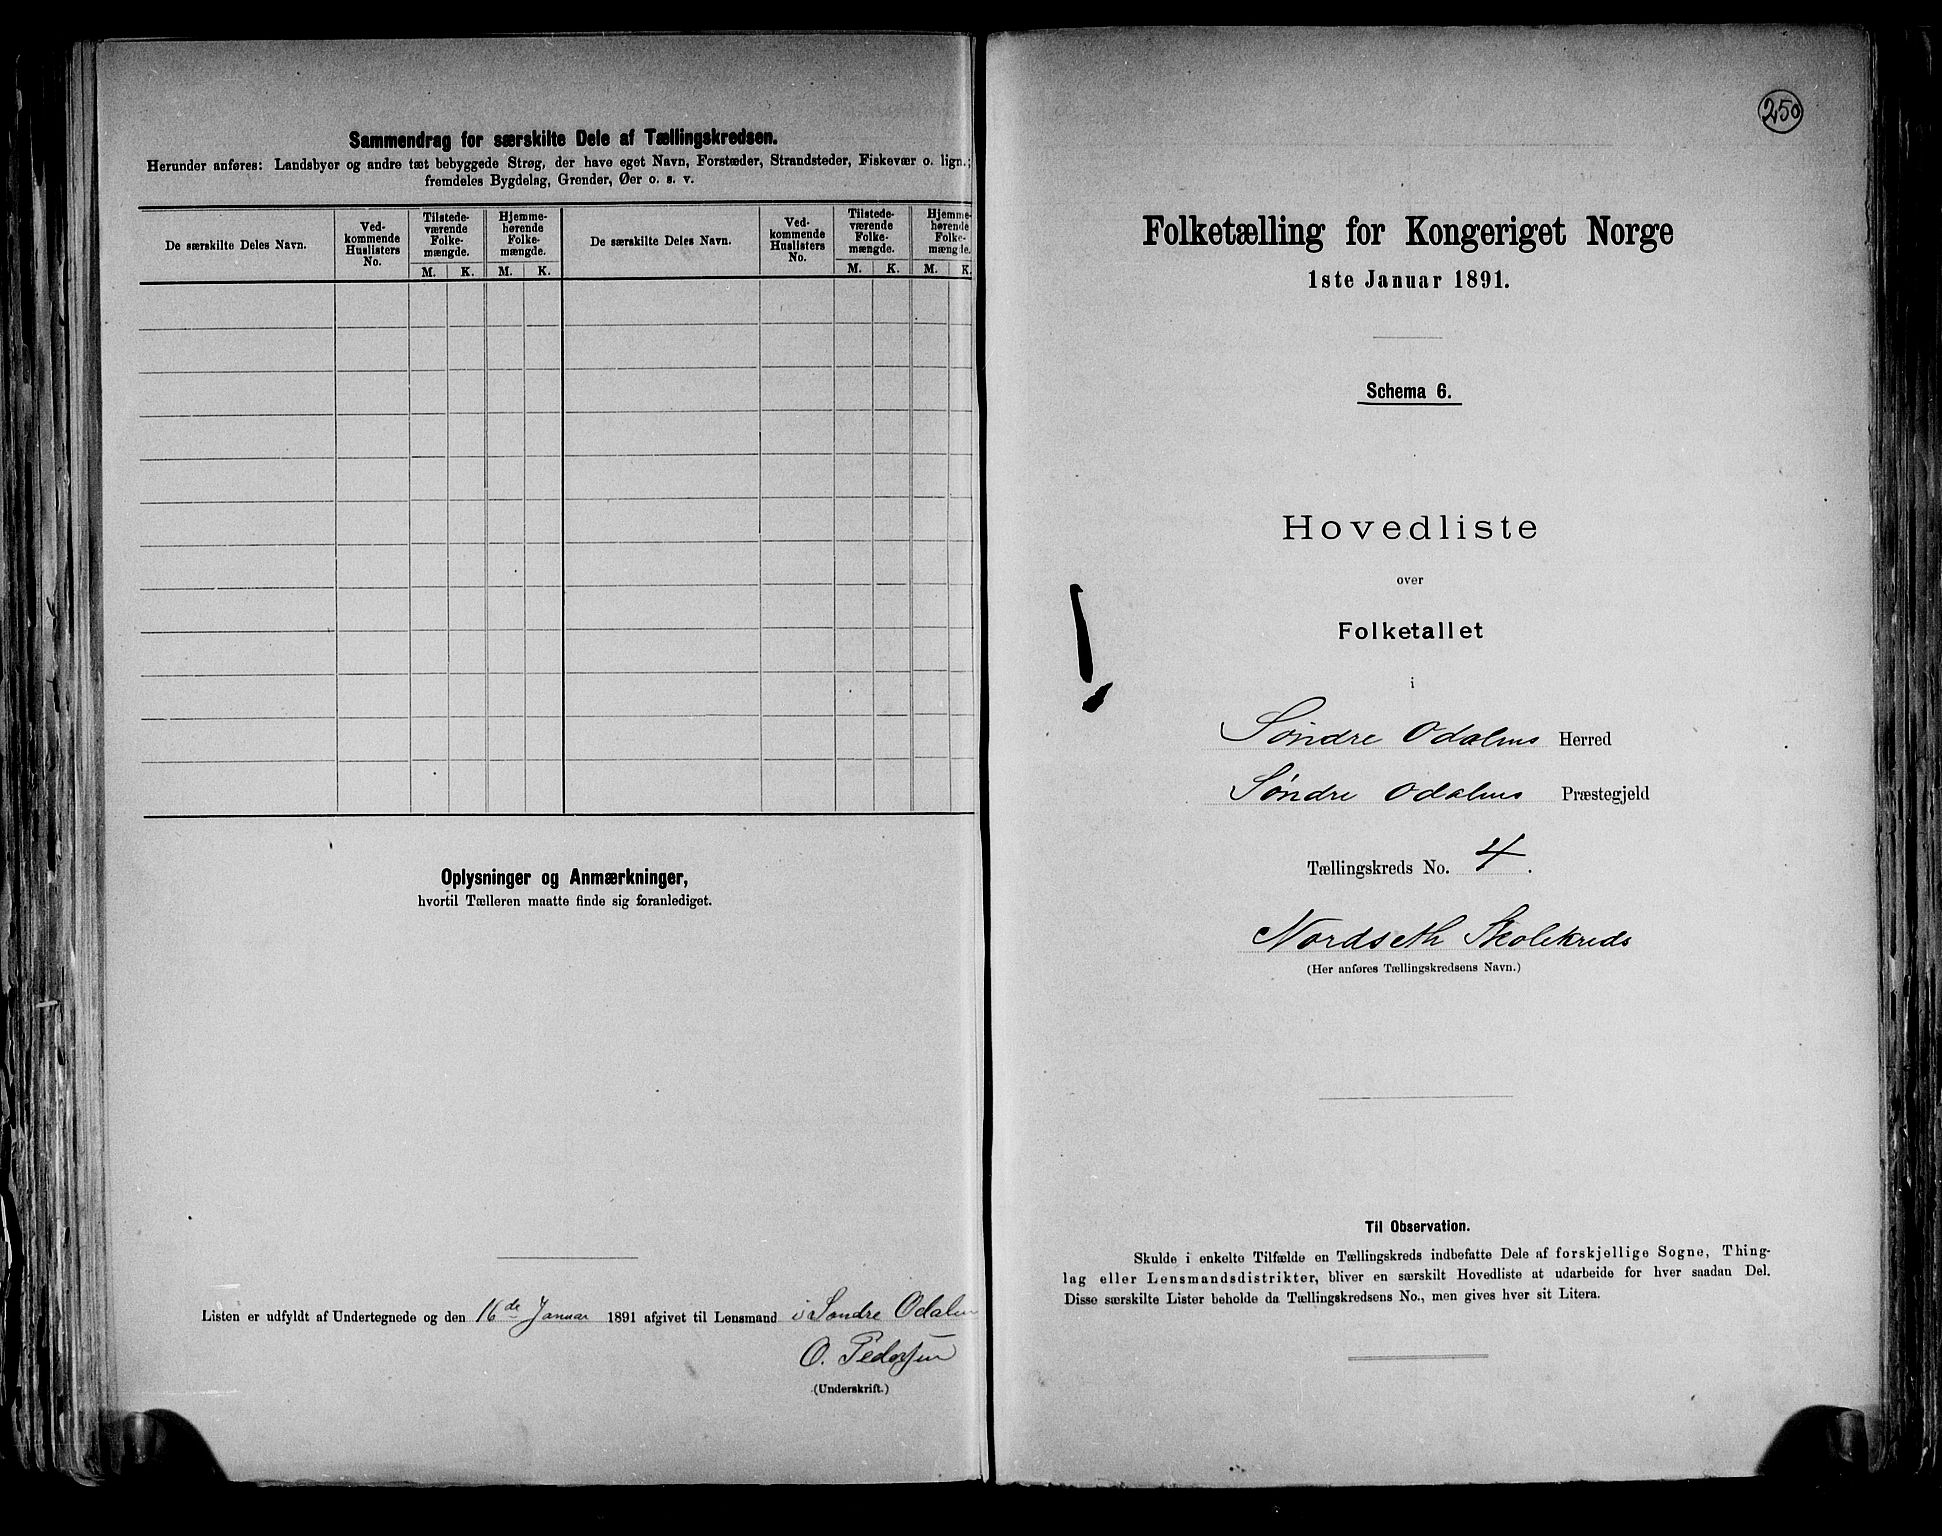 Sammendrag for særskilte Dele af Tællingskredsen.
Herunder anføres: Landsbyer og andre tæt bebyggede Strøg, der have eget Navn, Forstæder, Strandsteder, Fiskevær o. lign.;
fremdeles Bygdelag, Grender, Øer o. s. v.
De særskilte Deles Navn.
Ved-
kommende
Huslisters
No.
Tilstede-
værende
Folke-
mængde.
M. K.
Hjemme-
hørende
Folke-
mængde.
M. K.
De særskilte Deles Navn.
Ved-
kommende
Huslisters
No.
Tilstede-
værende
Folke-
mængde.
M. K.
Hjemme-
hørende
Folke-
mængde.
M. K.
Oplysninger og Anmærkninger,
hvortil Tælleren maatte finde sig foranlediget.
Listen er udfyldt af Undertegnede og den 16de Januar 1891 afgivet til Lensmand i Søndre Odalen
O. Pedersen
(Underskrift.)
250
Folketælling for Kongeriget Norge
1ste Januar 1891.
Schema 6.
Hovedliste
over
Folketallet
i
!
Søndre Odalens Herred
Søndre Odalens Præstegjeld
Tællingskreds No. 4.
Nordseth Skolekreds
(Her anføres Tællingskredsens Navn.)
Til Observation.
Skulde i enkelte Tilfælde en Tællingskreds indbefatte Dele af forskjellige Sogne, Thing-
lag eller Lensmandsdistrikter, bliver en særskilt Hovedliste at udarbeide for hver saadan Del.
Disse særskilte Lister beholde da Tællingskredsens No., men gives hver sit Litera.